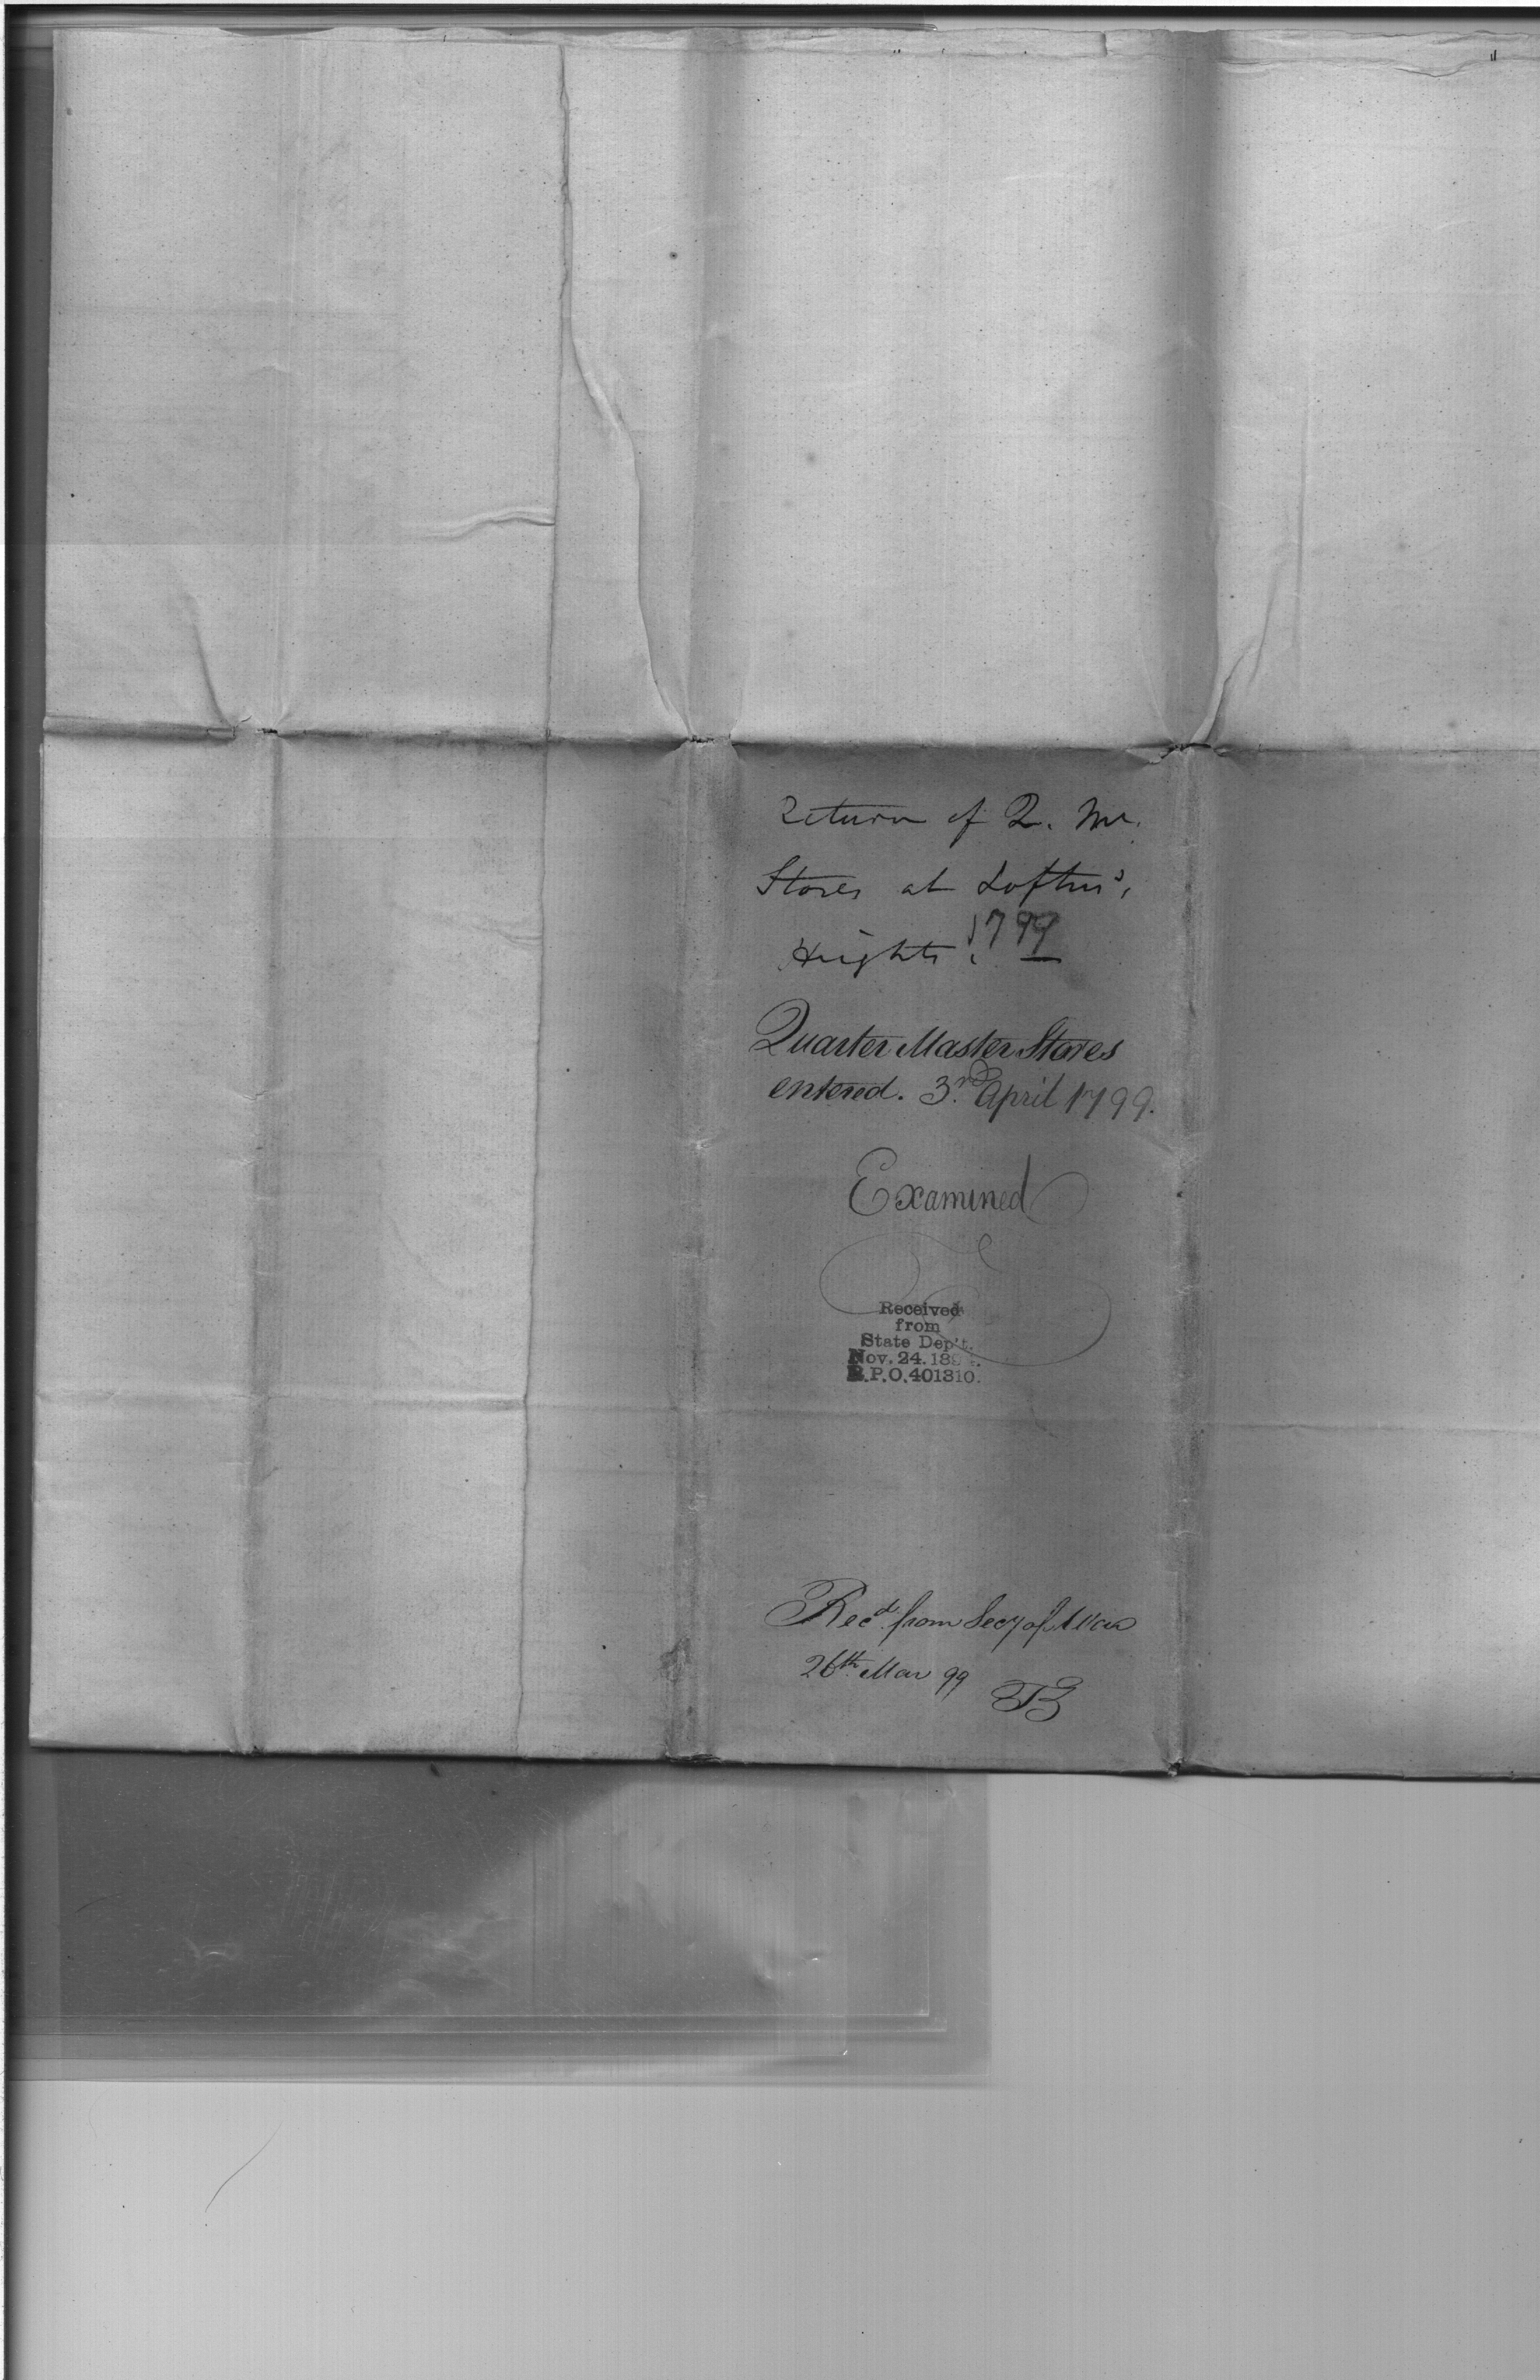 Return of Q. M.
Stores at Loftus',
Heights. 1799
Quarter Master Stores
entered. 3rd. April 1799.
Examined
Received
from
State Dep't.
Nov. 24. 189
R.P.O. 401310.
Recd. from Secy of War
26th. Mar 99